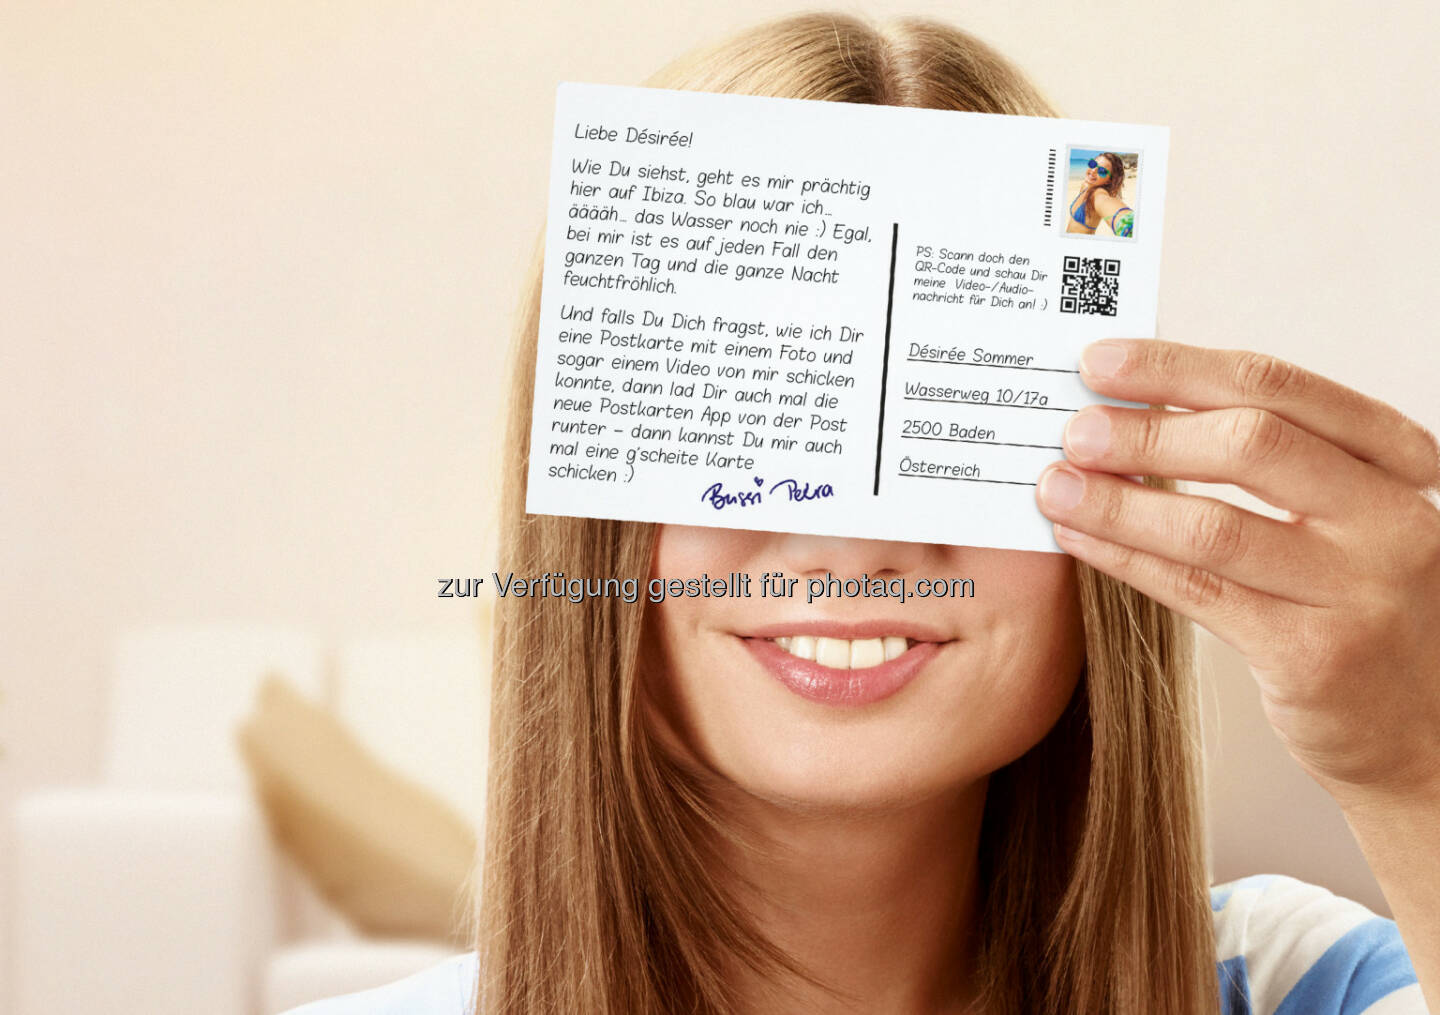 Liebe Désirée!
Wie Du siehst, geht es mir prächtig
hier auf Ibiza. So blau war ich...
ääääh... das Wasser noch nie :) Egal,
bei mir ist es auf jeden Fall den
ganzen Tag und die ganze Nacht
feuchtfröhlich.
Und falls Du Dich fragst, wie ich Dir
eine Postkarte mit einem Foto und
sogar einem Video von mir schicken
konnte, dann lad Dir auch mal die
neue Postkarten App von der Post
runter – dann kannst Du mir auch
mal eine g'scheite Karte
schicken :)
Bussi Petra
PS: Scann doch den
QR-Code und schau Dir
meine Video-/Audio-
nachricht für Dich an! :)
Désirée Sommer
Wasserweg 10/17a
2500 Baden
Österreich
zur Verfügung gestellt für photaq.com